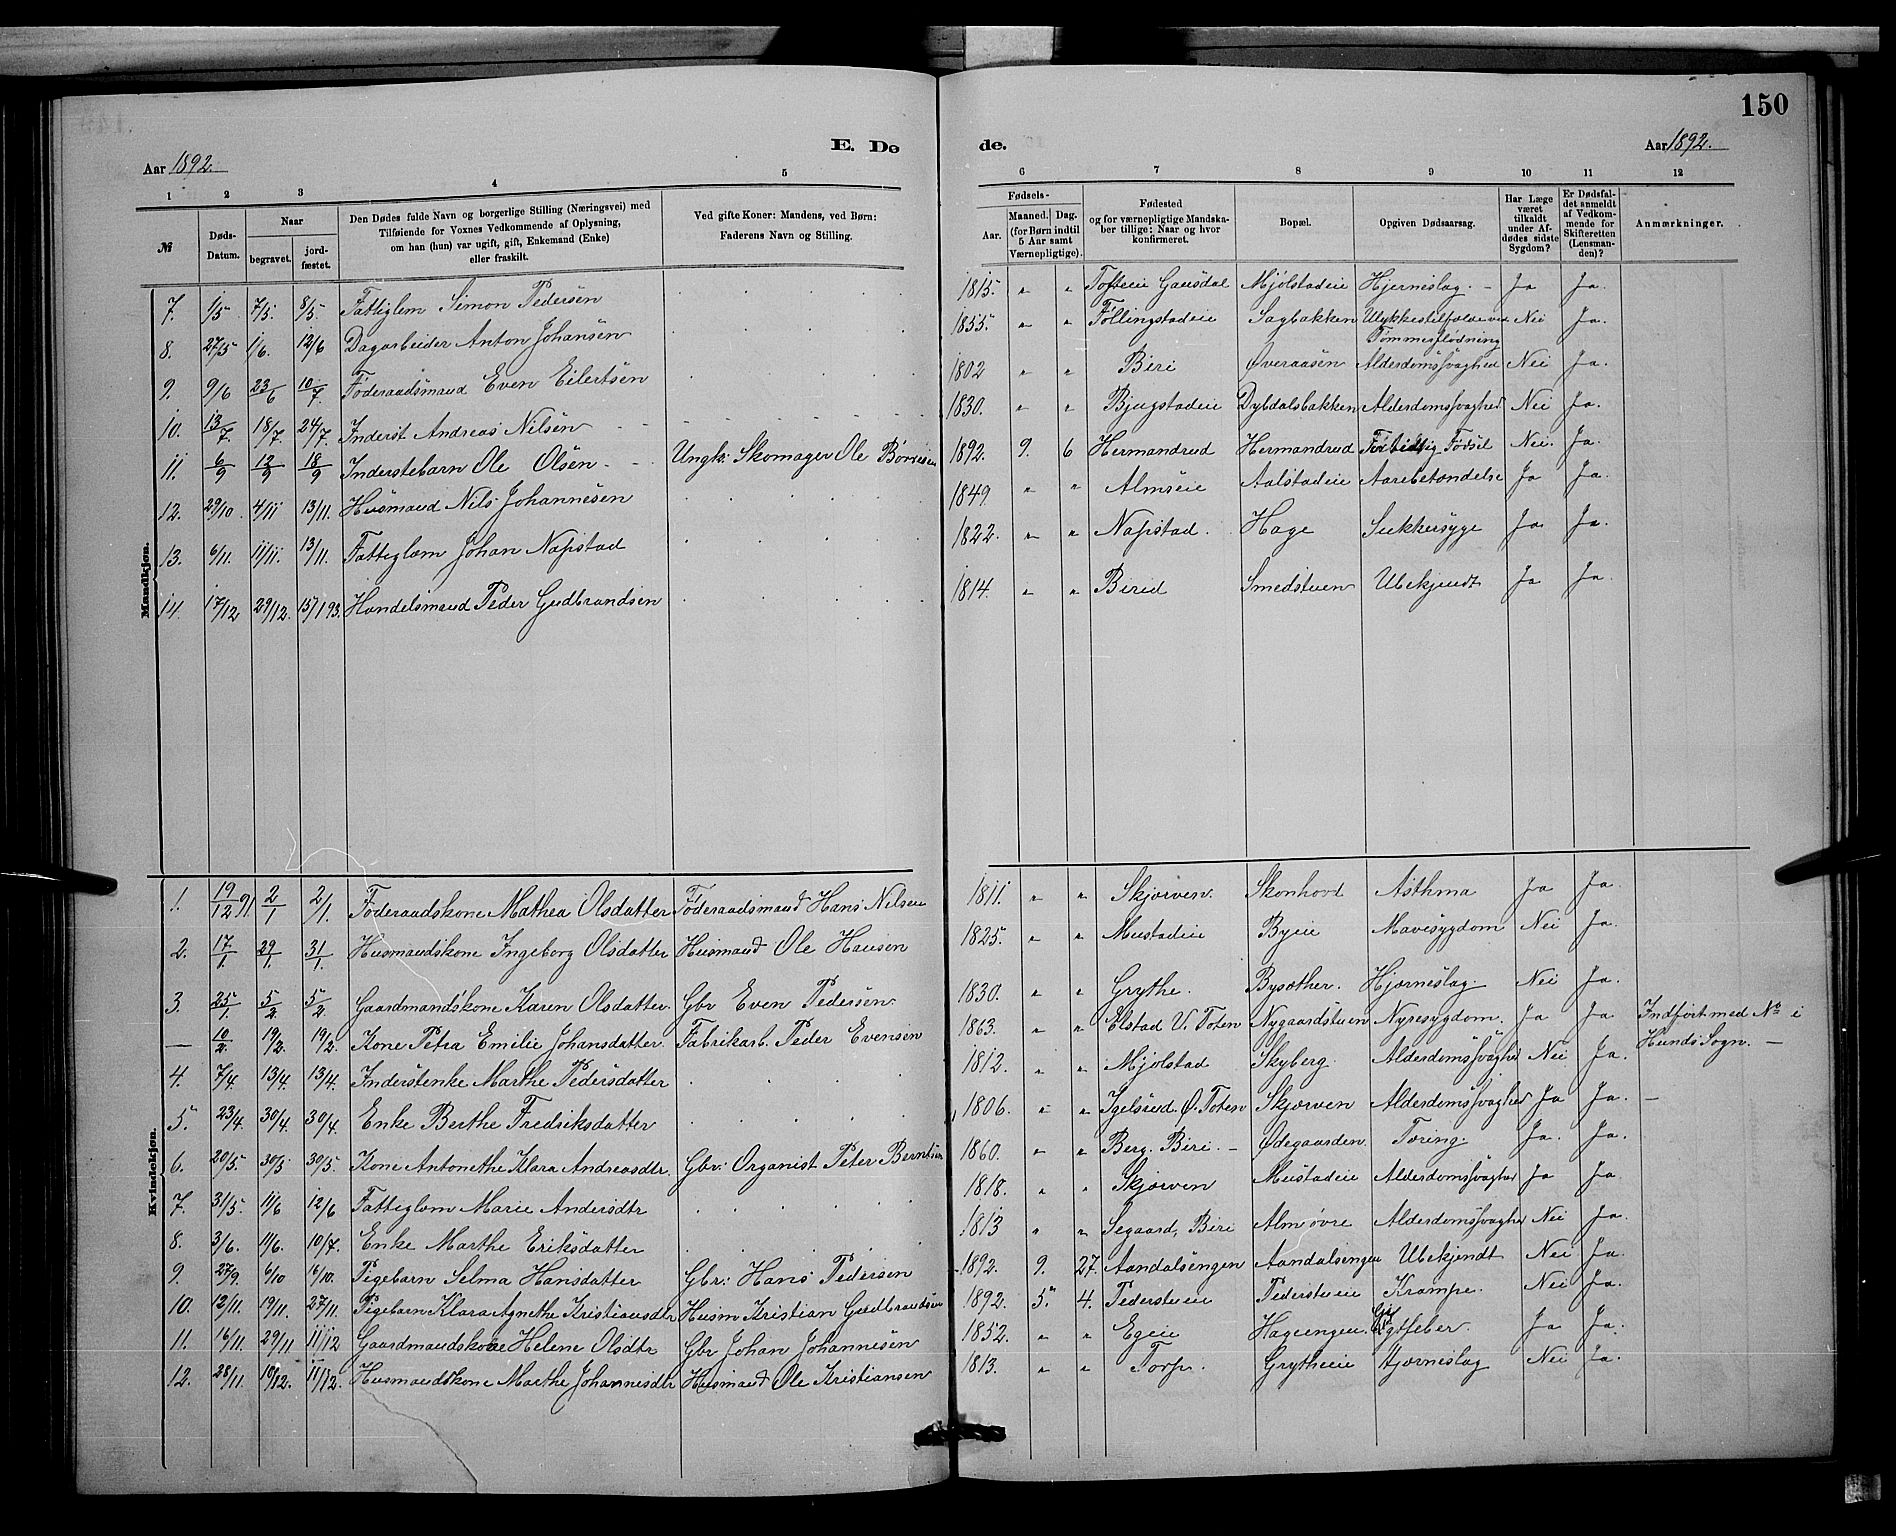 150
Aar 1892.
E. Dø
de.
Aar 1892.
1 2 3 4 5
6 7 8 9 10 11 12
№
Døds-Datum.
Naar
begravet.
jordfæstet.
Den Dødes fulde Navn og borgerlige Stilling (Næringsvei) med
Tilføiende for Voxnes Vedkommende af Oplysning,
om han (hun) var ugift, gift, Enkemand (Enke)
eller fraskilt.
Ved gifte Koner: Mandens, ved Børn:
Faderens Navn og Stilling.
Fødsels-
Aar.
Maaned. Dag.
(for Børn indtil
5 Aar samt
Værnepligtige).
Fødested
og for værnepligtige Mandska-
ber tillige: Naar og hvor
konfirmeret.
Bopæl.
Opgiven Dødsaarsag.
Har Læge
været
tilkaldt
under Af-
dødes sidste
Sygdom?
Er Dødsfal-
det anmeldt
af Vedkom-
mende for
Skifteretten
(Lensman-
den)?
Anmærkninger.
Mandkjøn.
7. 1/5 7/5. 8/5 Fattiglem Simon Pedersen 1815. " " Tofteeie Gausdal Mjølstadeie Hjerneslag. - Ja Ja.
8. 27/5 1/6. 12/6 Dagarbeider Anton Johansen 1855. " " Føllingstadeie Sagbakken Ulykkestilfælde ved Nei Ja.
Tømmerflødning
9. 9/6 23/6 10/7. Føderaadsmand Even Eilertsen 1802 " " Biri Øveraasen Alderdomssvaghed Nei Ja.
10. 13/7. 18/7. 24/7. Inderst Andreas Nilsen 1830. " " Bjugstadeie Dybdalsbakken Alderdomssvaghed Nei Ja.
11. 6/9 12/9 18/9 Inderstebarn Ole Olsen Ungk: Skomager Ole 1892. 9. 6 Hermandrud Hermandrud Fortidlig Fødsel Nei. Ja.
12. 29/10. 4/11 13/11. Husmand Nils Johannesen 1849 " " Almseie Aalstadeie Aarebetændelse Ja Ja.
13. 6/11. 11/11. 13/11. Fattiglem Johan Napstad 1822. " " Napstad. Hage Sukkersyge Ja Ja.
14. 17/12 29/12. 15/1 93. Handelsmand Peder Gudbrandsen 1814. " " Birid Smedstuen Ubekjendt Ja Ja.
Kvindekjøn.
1. 19/12 91. 2/1 2/1. Føderaadskone Mathea Olsdatter Føderaadsmand Hans Nilsen 1811. " " Skjørven. Skonhovd Asthma Ja Ja.
2. 17/1. 29/1. 31/1. Husmandskone Ingeborg Olsdatter Husmand Ole Hansen 1825. " " Mustadeie Byeie Mavesygdom Nei Ja.
3. 25/1. 5/2. 5/2. Gaardmandskone Karen Olsdatter. Gbr Even Pedersen. 1830. " " Grythe. Bysæther. Hjerneslag. Nei Ja.
— 10/2. 19/2. 19/2. Kone Petra Emilie Johansdatter. Fabrikarb. Peder Evensen 1863. " " Elstad V. Toten Nygaardstuen Nyresygdom. Ja Ja Indført med No 1
Hunds Sogn. —
4. 7/4. 13/4. 13/4. Inderstenke Marthe Pedersdatter 1812. " " Mjølstad Skyberg. Alderdomssvaghed Nei Ja.
5. 23/4. 30/4. 30/4. Enke Berthe Fredriksdatter 1806. " " Igelsrud Ø. Toten Skjørven Alderdomssvaghed Ja Ja. —
6. 20/5. 30/5 30/5. Kone Antonethe Klara Andreasdtr. Gbr: Organist Peter Berntsen 1860. " " Berg. Biri. — Ødegaarden. Tæring. Ja. Ja.
7. 31/5. 11/6 12/6 Fattiglem Marie Andersdtr 1818. " " Skjørven Mustadeie Alderdomssvaghed Ja Ja.
8. 3/6. 11/6. 10/7. Enke Marthe Eriksdatter 1813 " " Segaard, Biri Alm øvre Alderdomssvaghed Nei Ja.
9. 27/9. 6/10 16/10. Pigebarn Selma Hansdatter Gbr: Hans Pedersen 1892. 9. 27. Aandalsengen Aandalsengen Ubekjendt Nei Ja.
10. 12/11. 19/11. 27/11. Pigebarn Klara Agnethe Kristiansdtr Husm Kristian Gudbrandsen 1892. 5. 4. Pederstueie Pederstueie Krampe. Nei Ja.
11. 16/11. 29/11 11/12 Gaardmandskone Helene Olsdtr Gbr Johan Johannesen 1852. " " Egeie Hageengen. Ja Ja.
12. 28/11. 10/12. 11/12. Husmandskone Marthe Johannesdtr Husmand Ole Kristiansen 1813. " " Torp. Grytheeie Hjerneslag Nei Ja.